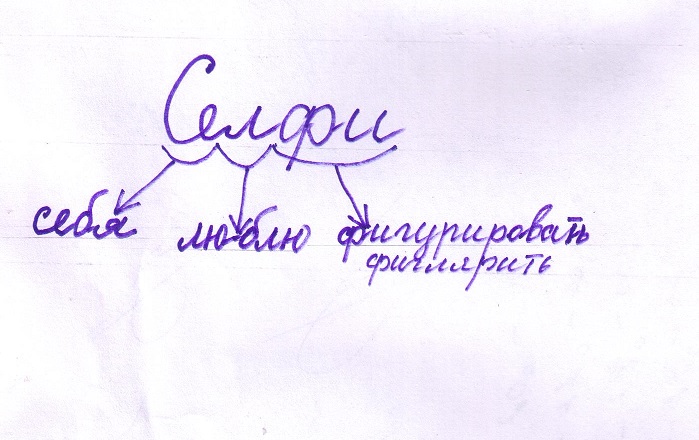 Селфи
себя люблю фигурировать
фиглярить